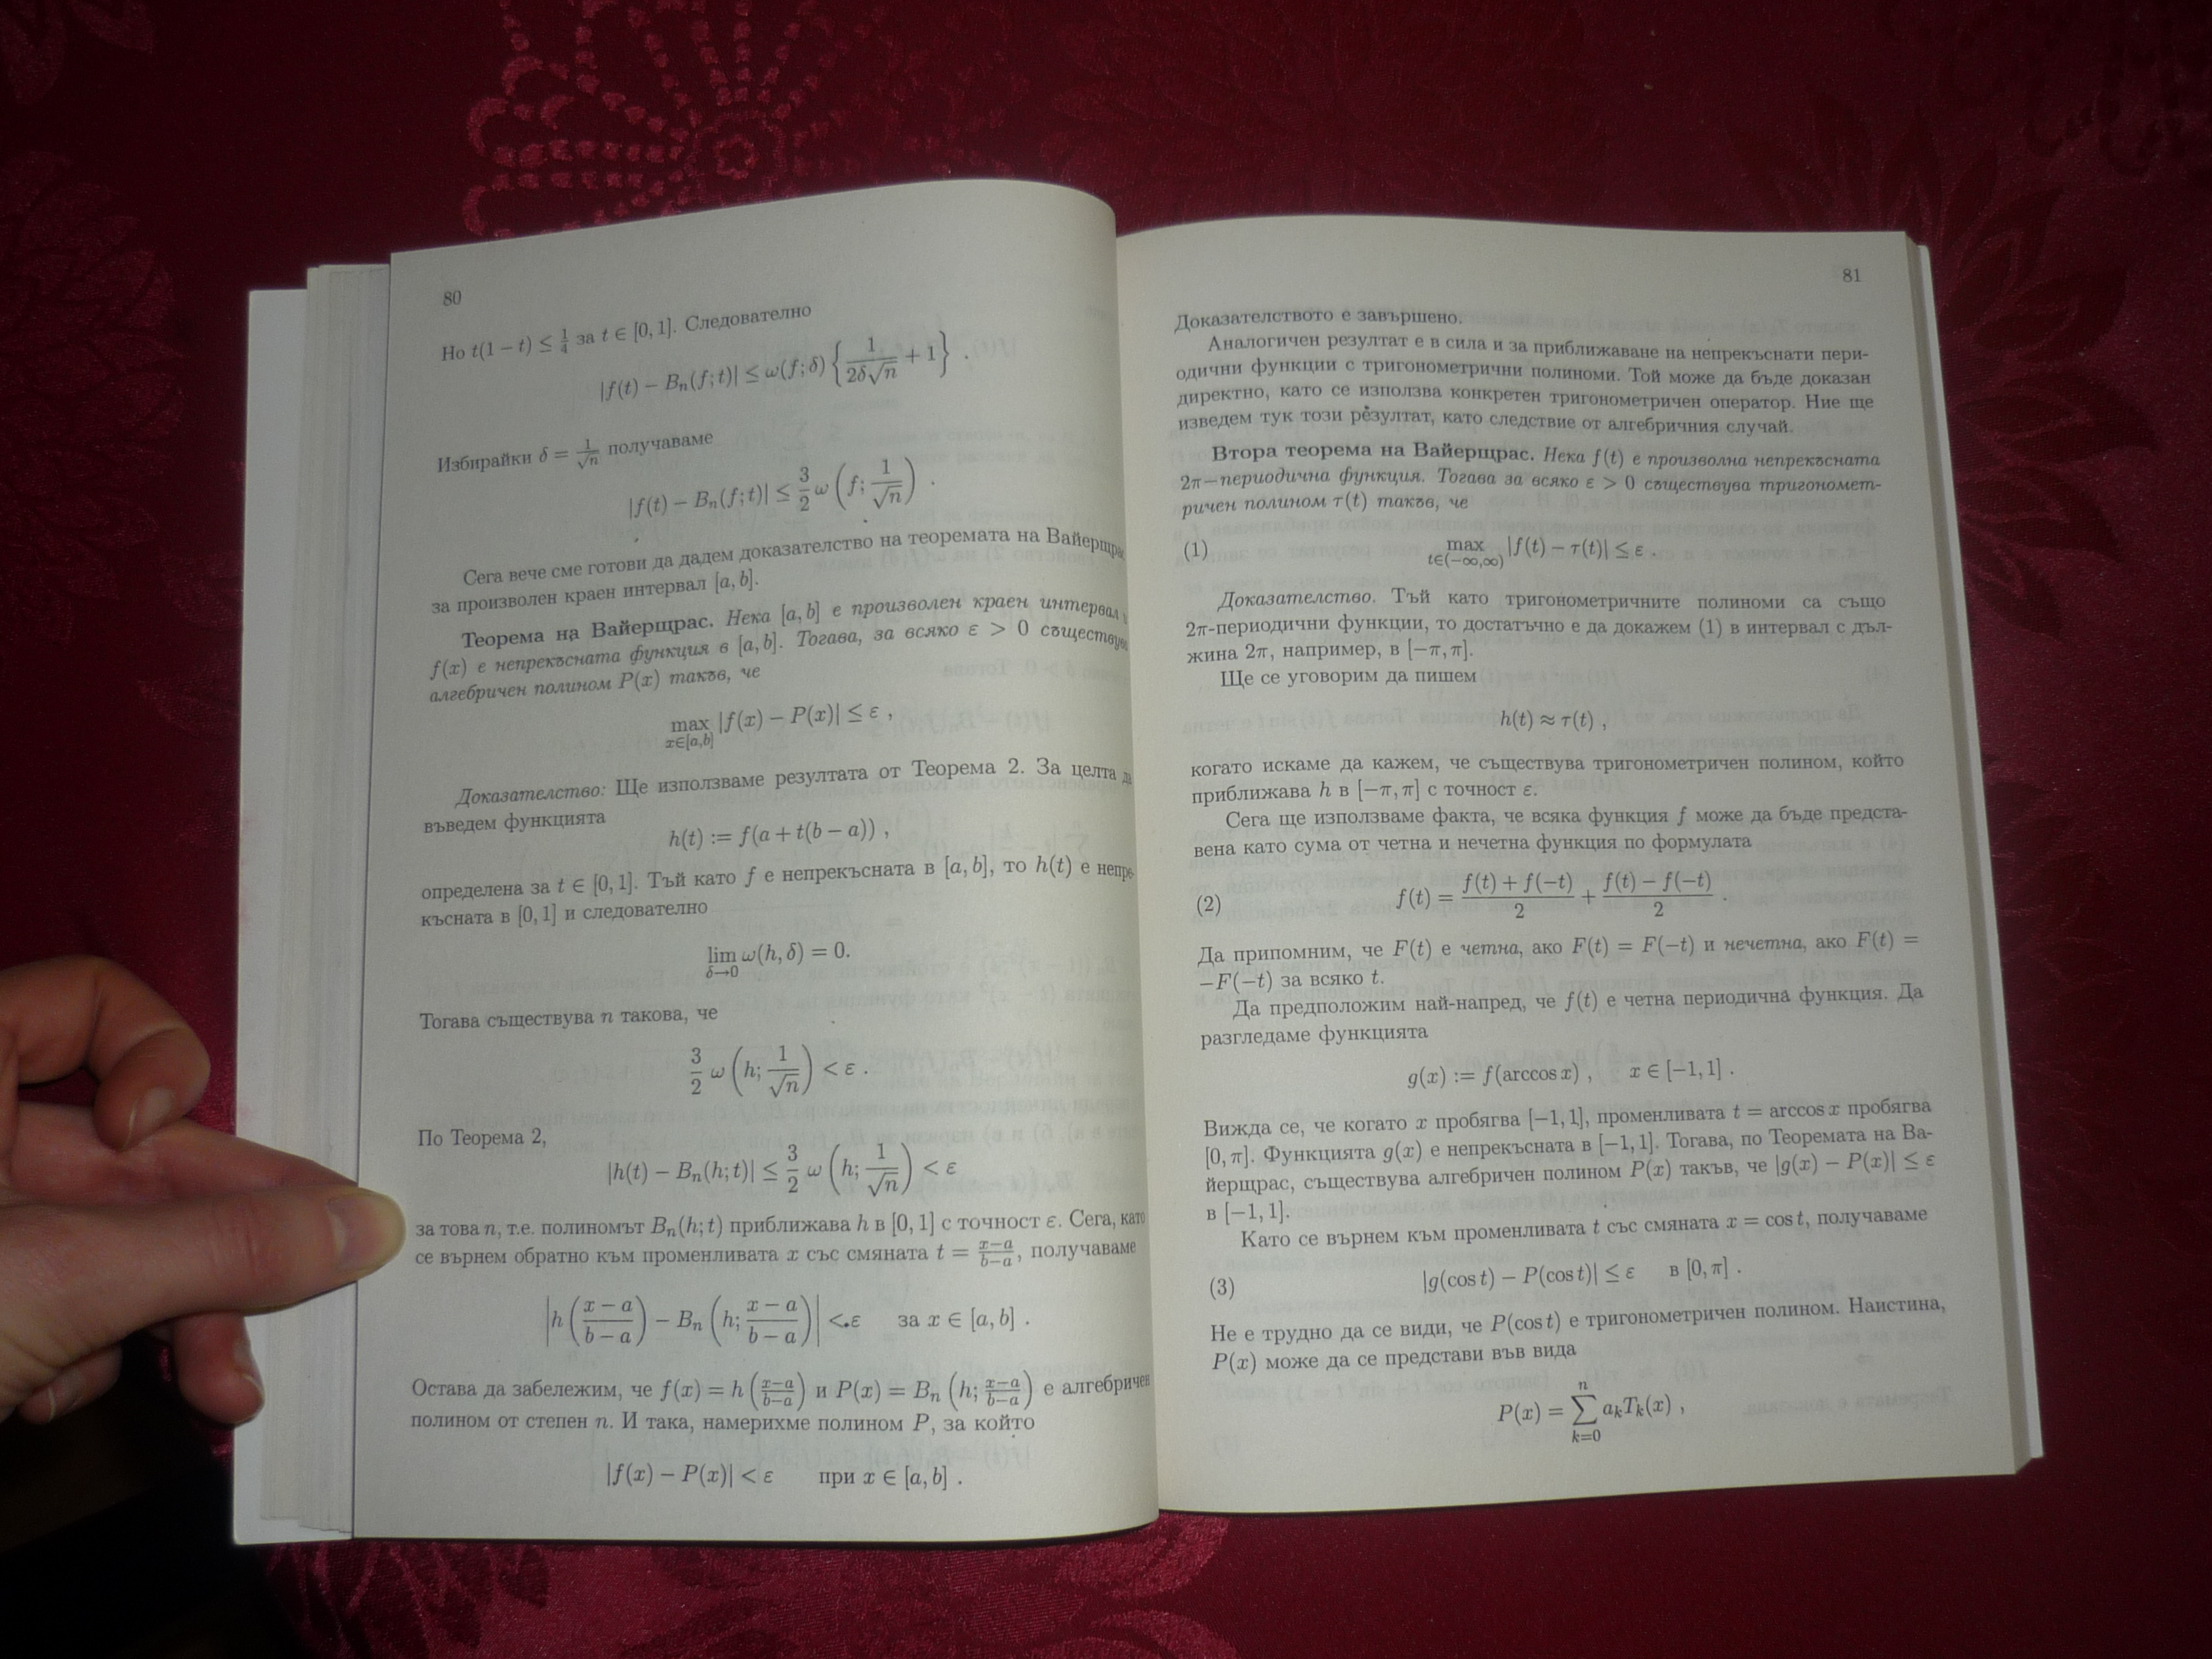 80
Но t(1 − t) ≤ 1/4 за t ∈ [0, 1]. Следователно
|f(t) − Bₙ(f; t)| ≤ ω(f; δ) { 1/(2δ√n) + 1 } .
Избирайки δ = 1/√n получаваме
|f(t) − Bₙ(f; t)| ≤ 3/2 ω ( f; 1/√n ) .
Сега вече сме готови да дадем доказателство на теоремата на Вайерщрас
за произволен краен интервал [a, b].
Теорема на Вайерщрас. Нека [a, b] е произволен краен интервал и
f(x) е непрекъсната функция в [a, b]. Тогава, за всяко ε > 0 съществува
алгебричен полином P(x) такъв, че
max |f(x) − P(x)| ≤ ε ,
x∈[a,b]
Доказателство: Ще използваме резултата от Теорема 2. За целта да
въведем функцията
h(t) := f(a + t(b − a)) ,
определена за t ∈ [0, 1]. Тъй като f е непрекъсната в [a, b], то h(t) е непре-
късната в [0, 1] и следователно
lim ω(h, δ) = 0.
δ→0
Тогава съществува n такова, че
3/2 ω ( h; 1/√n ) < ε .
По Теорема 2,
|h(t) − Bₙ(h; t)| ≤ 3/2 ω ( h; 1/√n ) < ε
за това n, т.е. полиномът Bₙ(h; t) приближава h в [0, 1] с точност ε. Сега, като
се върнем обратно към променливата x със смяната t = (x−a)/(b−a), получаваме
| h ( (x − a)/(b − a) ) − Bₙ ( h; (x − a)/(b − a) ) | < ε за x ∈ [a, b] .
Остава да забележим, че f(x) = h ( (x−a)/(b−a) ) и P(x) = Bₙ ( h; (x−a)/(b−a) ) е алгебричен
полином от степен n. И така, намерихме полином P, за който
|f(x) − P(x)| < ε при x ∈ [a, b] .
81
Доказателството е завършено.
Аналогичен резултат е в сила и за приближаване на непрекъснати пери-
одични функции с тригонометрични полиноми. Той може да бъде доказан
директно, като се използва конкретен тригонометричен оператор. Ние ще
изведем тук този резултат, като следствие от алгебричния случай.
Втора теорема на Вайерщрас. Нека f(t) е произволна непрекъсната
2π−периодична функция. Тогава за всяко ε > 0 съществува тригономет-
ричен полином τ(t) такъв, че
(1) max |f(t) − τ(t)| ≤ ε .
t∈(−∞,∞)
Доказателство. Тъй като тригонометричните полиноми са също
2π-периодични функции, то достатъчно е да докажем (1) в интервал с дъл-
жина 2π, например, в [−π, π].
Ще се уговорим да пишем
h(t) ≈ τ(t) ,
когато искаме да кажем, че съществува тригонометричен полином, който
приближава h в [−π, π] с точност ε.
Сега ще използваме факта, че всяка функция f може да бъде предста-
вена като сума от четна и нечетна функция по формулата
(2) f(t) = (f(t) + f(−t))/2 + (f(t) − f(−t))/2 .
Да припомним, че F(t) е четна, ако F(t) = F(−t) и нечетна, ако F(t) =
−F(−t) за всяко t.
Да предположим най-напред, че f(t) е четна периодична функция. Да
разгледаме функцията
g(x) := f(arccos x) , x ∈ [−1, 1] .
Вижда се, че когато x пробягва [−1, 1], променливата t = arccos x пробягва
[0, π]. Функцията g(x) е непрекъсната в [−1, 1]. Тогава, по Теоремата на Ва-
йерщрас, съществува алгебричен полином P(x) такъв, че |g(x) − P(x)| ≤ ε
в [−1, 1].
Като се върнем към променливата t със смяната x = cos t, получаваме
(3) |g(cos t) − P(cos t)| ≤ ε в [0, π] .
Не е трудно да се види, че P(cos t) е тригонометричен полином. Наистина,
P(x) може да се представи във вида
P(x) = ∑ₖ₌₀ⁿ aₖTₖ(x) ,